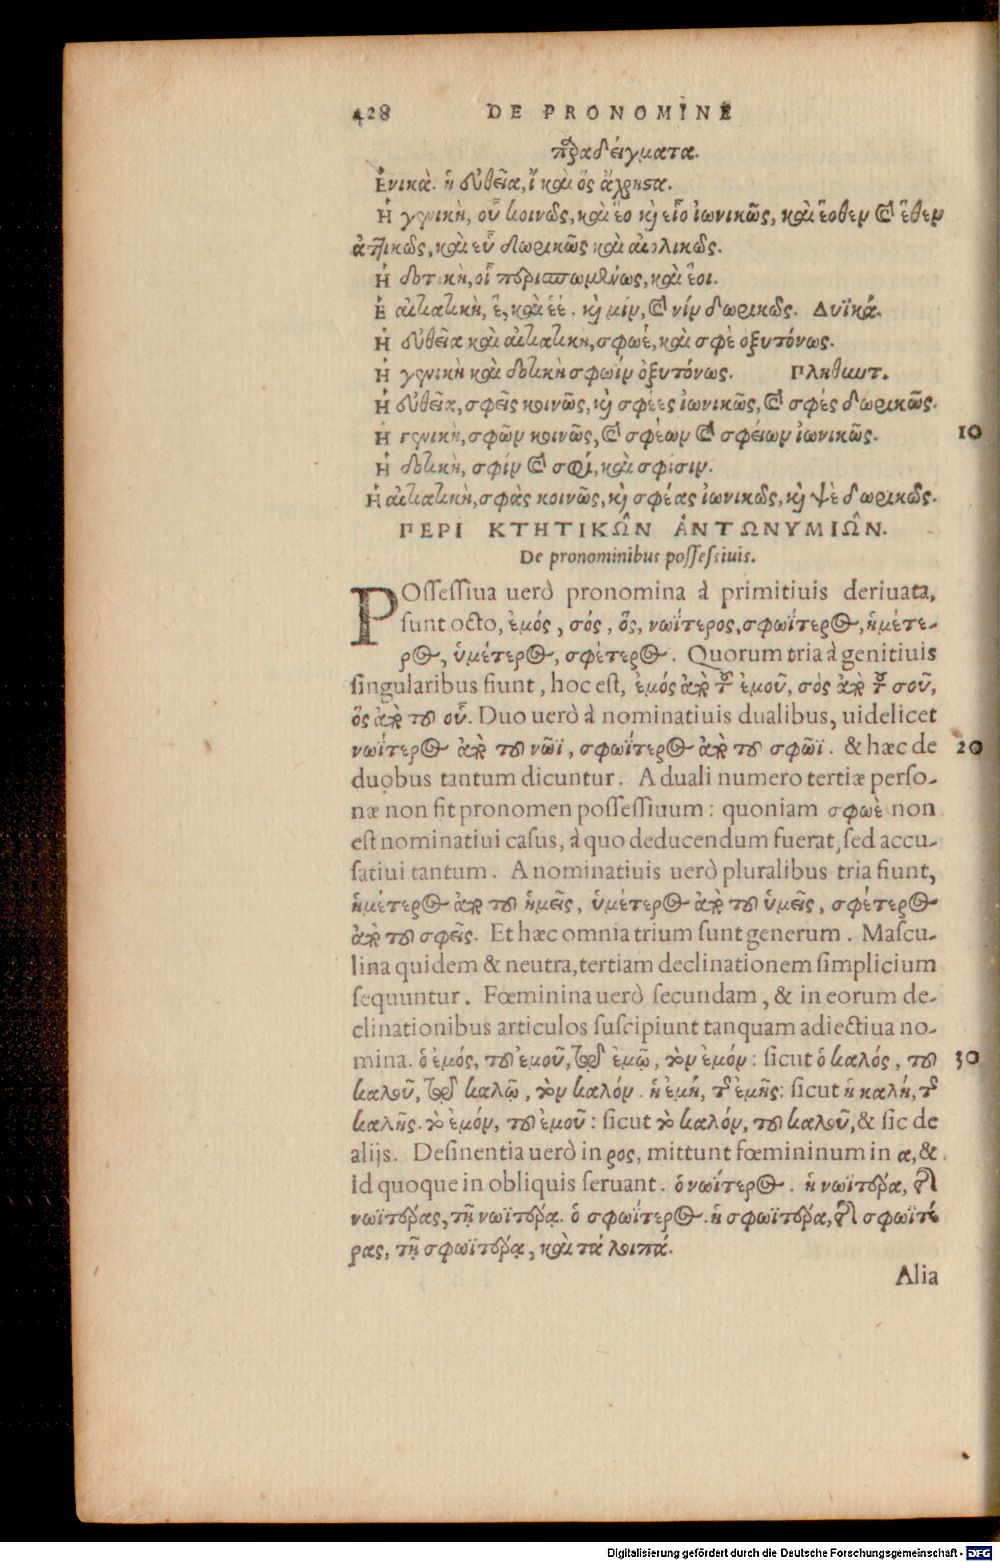 428 DE PRONOMINE
παραδείγματα.
Ἑνικὰ. ἡ εὐθεῖα, ἵ καὶ ὅς ἄχρηστα.
Ἡ γενικὴ, οὗ κοινῶς, καὶ ἕο καὶ εἷο ἰωνικῶς, καὶ ἕοθεν καὶ ἕθεν
ἀττικῶς, καὶ εὗ δωρικῶς καὶ αἰολικῶς.
Ἡ δοτικὴ, οἷ περισπωμένως, καὶ ἕοι.
Ἡ αἰτιατικὴ, ἓ, καὶ ἑέ. καὶ μίν, καὶ νίν δωρικῶς. Δυϊκά.
Ἡ εὐθεῖα καὶ αἰτιατικὴ, σφωέ, καὶ σφὲ ὀξυτόνως.
Ἡ γενικὴ καὶ δοτικὴ σφωΐν ὀξυτόνως. Πληθυντ.
Ἡ εὐθεῖα, σφεῖς κοινῶς, καὶ σφέες ἰωνικῶς, καὶ σφὲς δωρικῶς.
Ἡ γενικὴ, σφῶν κοινῶς, καὶ σφέων καὶ σφείων ἰωνικῶς. 10
Ἡ δοτικὴ, σφίν καὶ σφί, καὶ σφίσιν.
Ἡ αἰτιατικὴ, σφὰς κοινῶς, καὶ σφέας ἰωνικῶς, καὶ ψὲ δωρικῶς.
ΠΕΡΙ ΚΤΗΤΙΚΩ͂Ν ἈΝΤΩΝΥΜΙΩ͂Ν.
De pronominibus possessiuis.
POssessiua uerò pronomina à primitiuis deriuata,
sunt octo, ἐμός, σός, ὅς, νωΐτερος, σφωΐτερος, ἡμέτε-
ρος, ὑμέτερος, σφέτερος. Quorum tria à genitiuis
singularibus fiunt, hoc est, ἐμός ἀπὸ τῆς ἐμοῦ, σὸς ἀπὸ τῆς σοῦ,
ὅς ἀπὸ τοῦ οὗ. Duo uerò à nominatiuis dualibus, uidelicet
νωΐτερος ἀπὸ τοῦ νῶϊ, σφωΐτερος ἀπὸ τοῦ σφῶϊ. & hæc de 20
duobus tantum dicuntur. A duali numero tertiæ perso-
næ non fit pronomen possessiuum: quoniam σφωὲ non
est nominatiui casus, à quo deducendum fuerat, sed accu-
satiui tantum. A nominatiuis uerò pluralibus tria fiunt,
ἡμέτερος ἀπὸ τοῦ ἡμεῖς, ὑμέτερος ἀπὸ τοῦ ὑμεῖς, σφέτερος
ἀπὸ τοῦ σφεῖς. Et hæc omnia trium sunt generum. Mascu-
lina quidem & neutra, tertiam declinationem simplicium
sequuntur. Fœminina uerò secundam, & in eorum de-
clinationibus articulos suscipiunt tanquam adiectiua no-
mina. ὁ ἐμός, τοῦ ἐμοῦ, τῷ ἐμῷ, τὸν ἐμόν: sicut ὁ καλός, τοῦ 30
καλοῦ, τῷ καλῷ, τὸν καλόν. ἡ ἐμή, τῆς ἐμῆς: sicut ἡ καλή, τῆς
καλῆς. τὸ ἐμόν, τοῦ ἐμοῦ: sicut τὸ καλόν, τοῦ καλοῦ, & sic de
alijs. Desinentia uerò in ρος, mittunt fœmininum in α, &
id quoque in obliquis seruant. ὁ νωΐτερος. ἡ νωϊτέρα, τῆς
νωϊτέρας, τῇ νωϊτέρᾳ. ὁ σφωΐτερος. ἡ σφωϊτέρα, τῆς σφωϊτέ
ρας, τῇ σφωϊτέρᾳ, καὶ τὰ λοιπά.
Alia
Digitalisierung gefördert durch die Deutsche Forschungsgemeinschaft - DFG